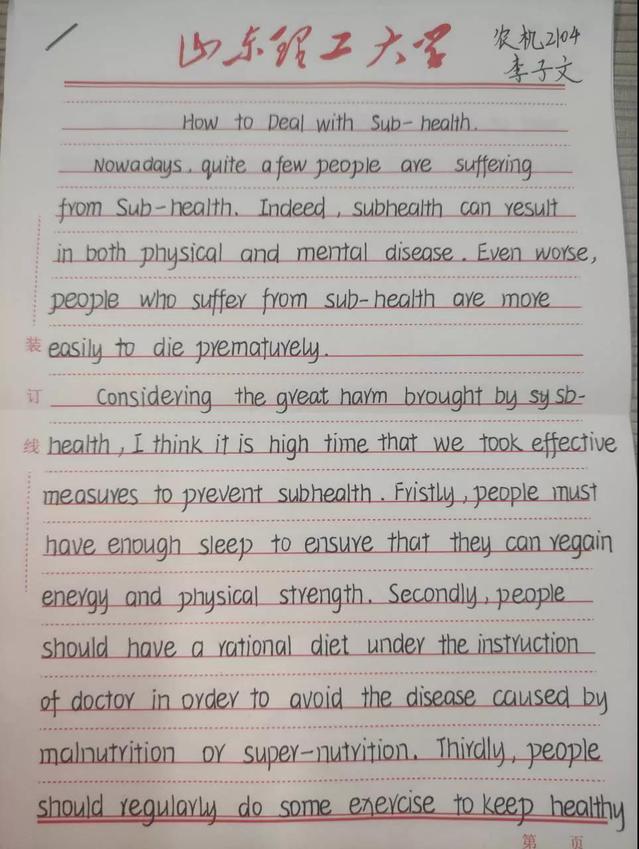 山东理工大学
农机2104
李子文
How to Deal with Sub-health.
Nowadays, quite a few people are suffering
from Sub-health. Indeed, subhealth can result
in both physical and mental disease. Even worse,
people who suffer from sub-health are more
easily to die prematurely.
Considering the great harm brought by sy sb-
health, I think it is high time that we took effective
measures to prevent subhealth. Fristly, people must
have enough sleep to ensure that they can regain
energy and physical strength. Secondly, people
should have a rational diet under the instruction
of doctor in order to avoid the disease caused by
malnutrition or super-nutrition. Thirdly, people
should regularly do some exercise to keep healthy
装
订
线
第 页